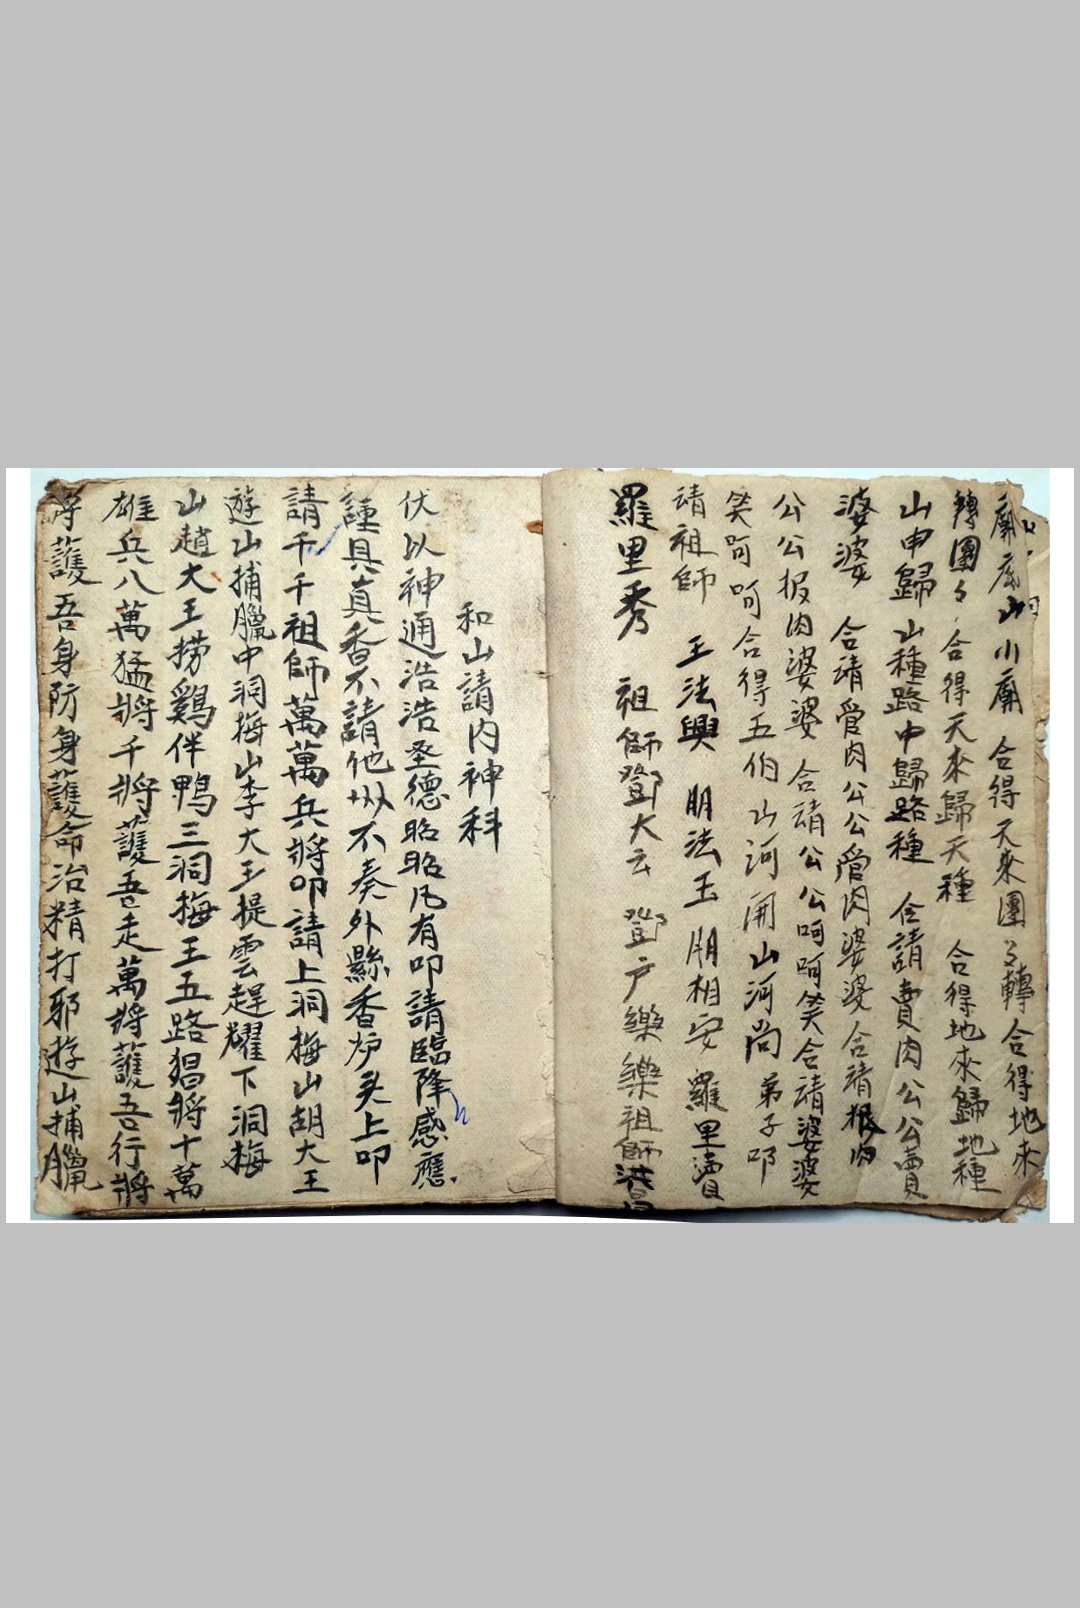 廟底山小廟 合得天來團々轉合得地來
轉團々 合得天來歸天種 合得地來歸地種
山申歸 山種路中歸路種 仝請賣肉公公賣
婆婆 合請管肉公公管肉婆婆 合請根肉
公公报肉婆婆 合請公公呵呵笑合請婆婆
笑呵呵合得五伯山河開山河尚 弟子叩
請祖師 王法興 朋法玉 朋相安 羅里
羅里秀 祖師鄧大云 鄧户樂樂祖師
和山請内神科
伏以神通浩浩圣德昭昭凡有叩請臨降感應
謹具真香不請他州不奏外縣香炉头上叩
請千千祖師萬萬兵將叩請上洞梅山胡大王
遊山捕臘中洞梅山李大王提雲趕耀下洞梅
山趙大王撈鷄伴鴨三洞梅王五路猖將十萬
雄兵八萬猛將千將護吾走萬將護吾行將
護吾身防身護命冶精打邪遊山捕臘